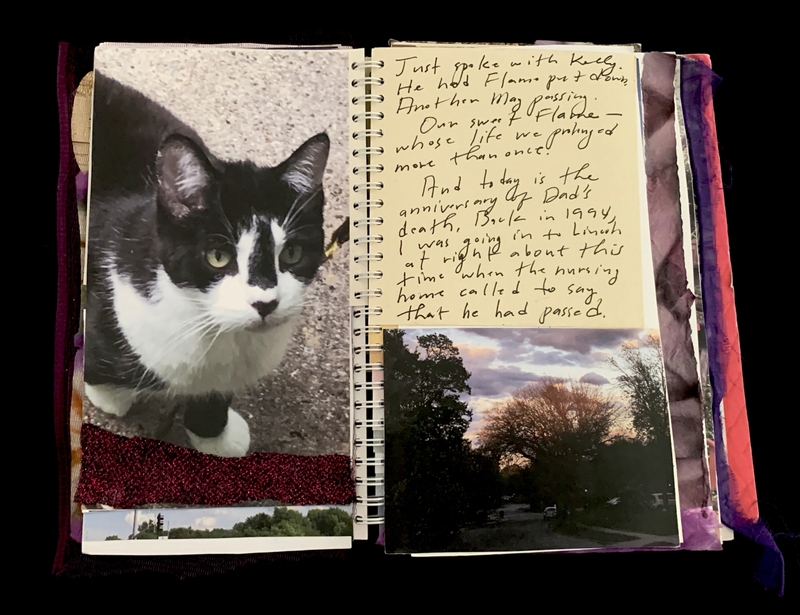 Just spoke with Kelly.
He had Flame put down.
Another May passing.
Our sweet Flame —
whose life we prolonged
more than once.
And today is the
anniversary of Dad's
death. Back in 1994,
I was going in to Lincoln
at right about this
time when the nursing
home called to say
that he had passed.